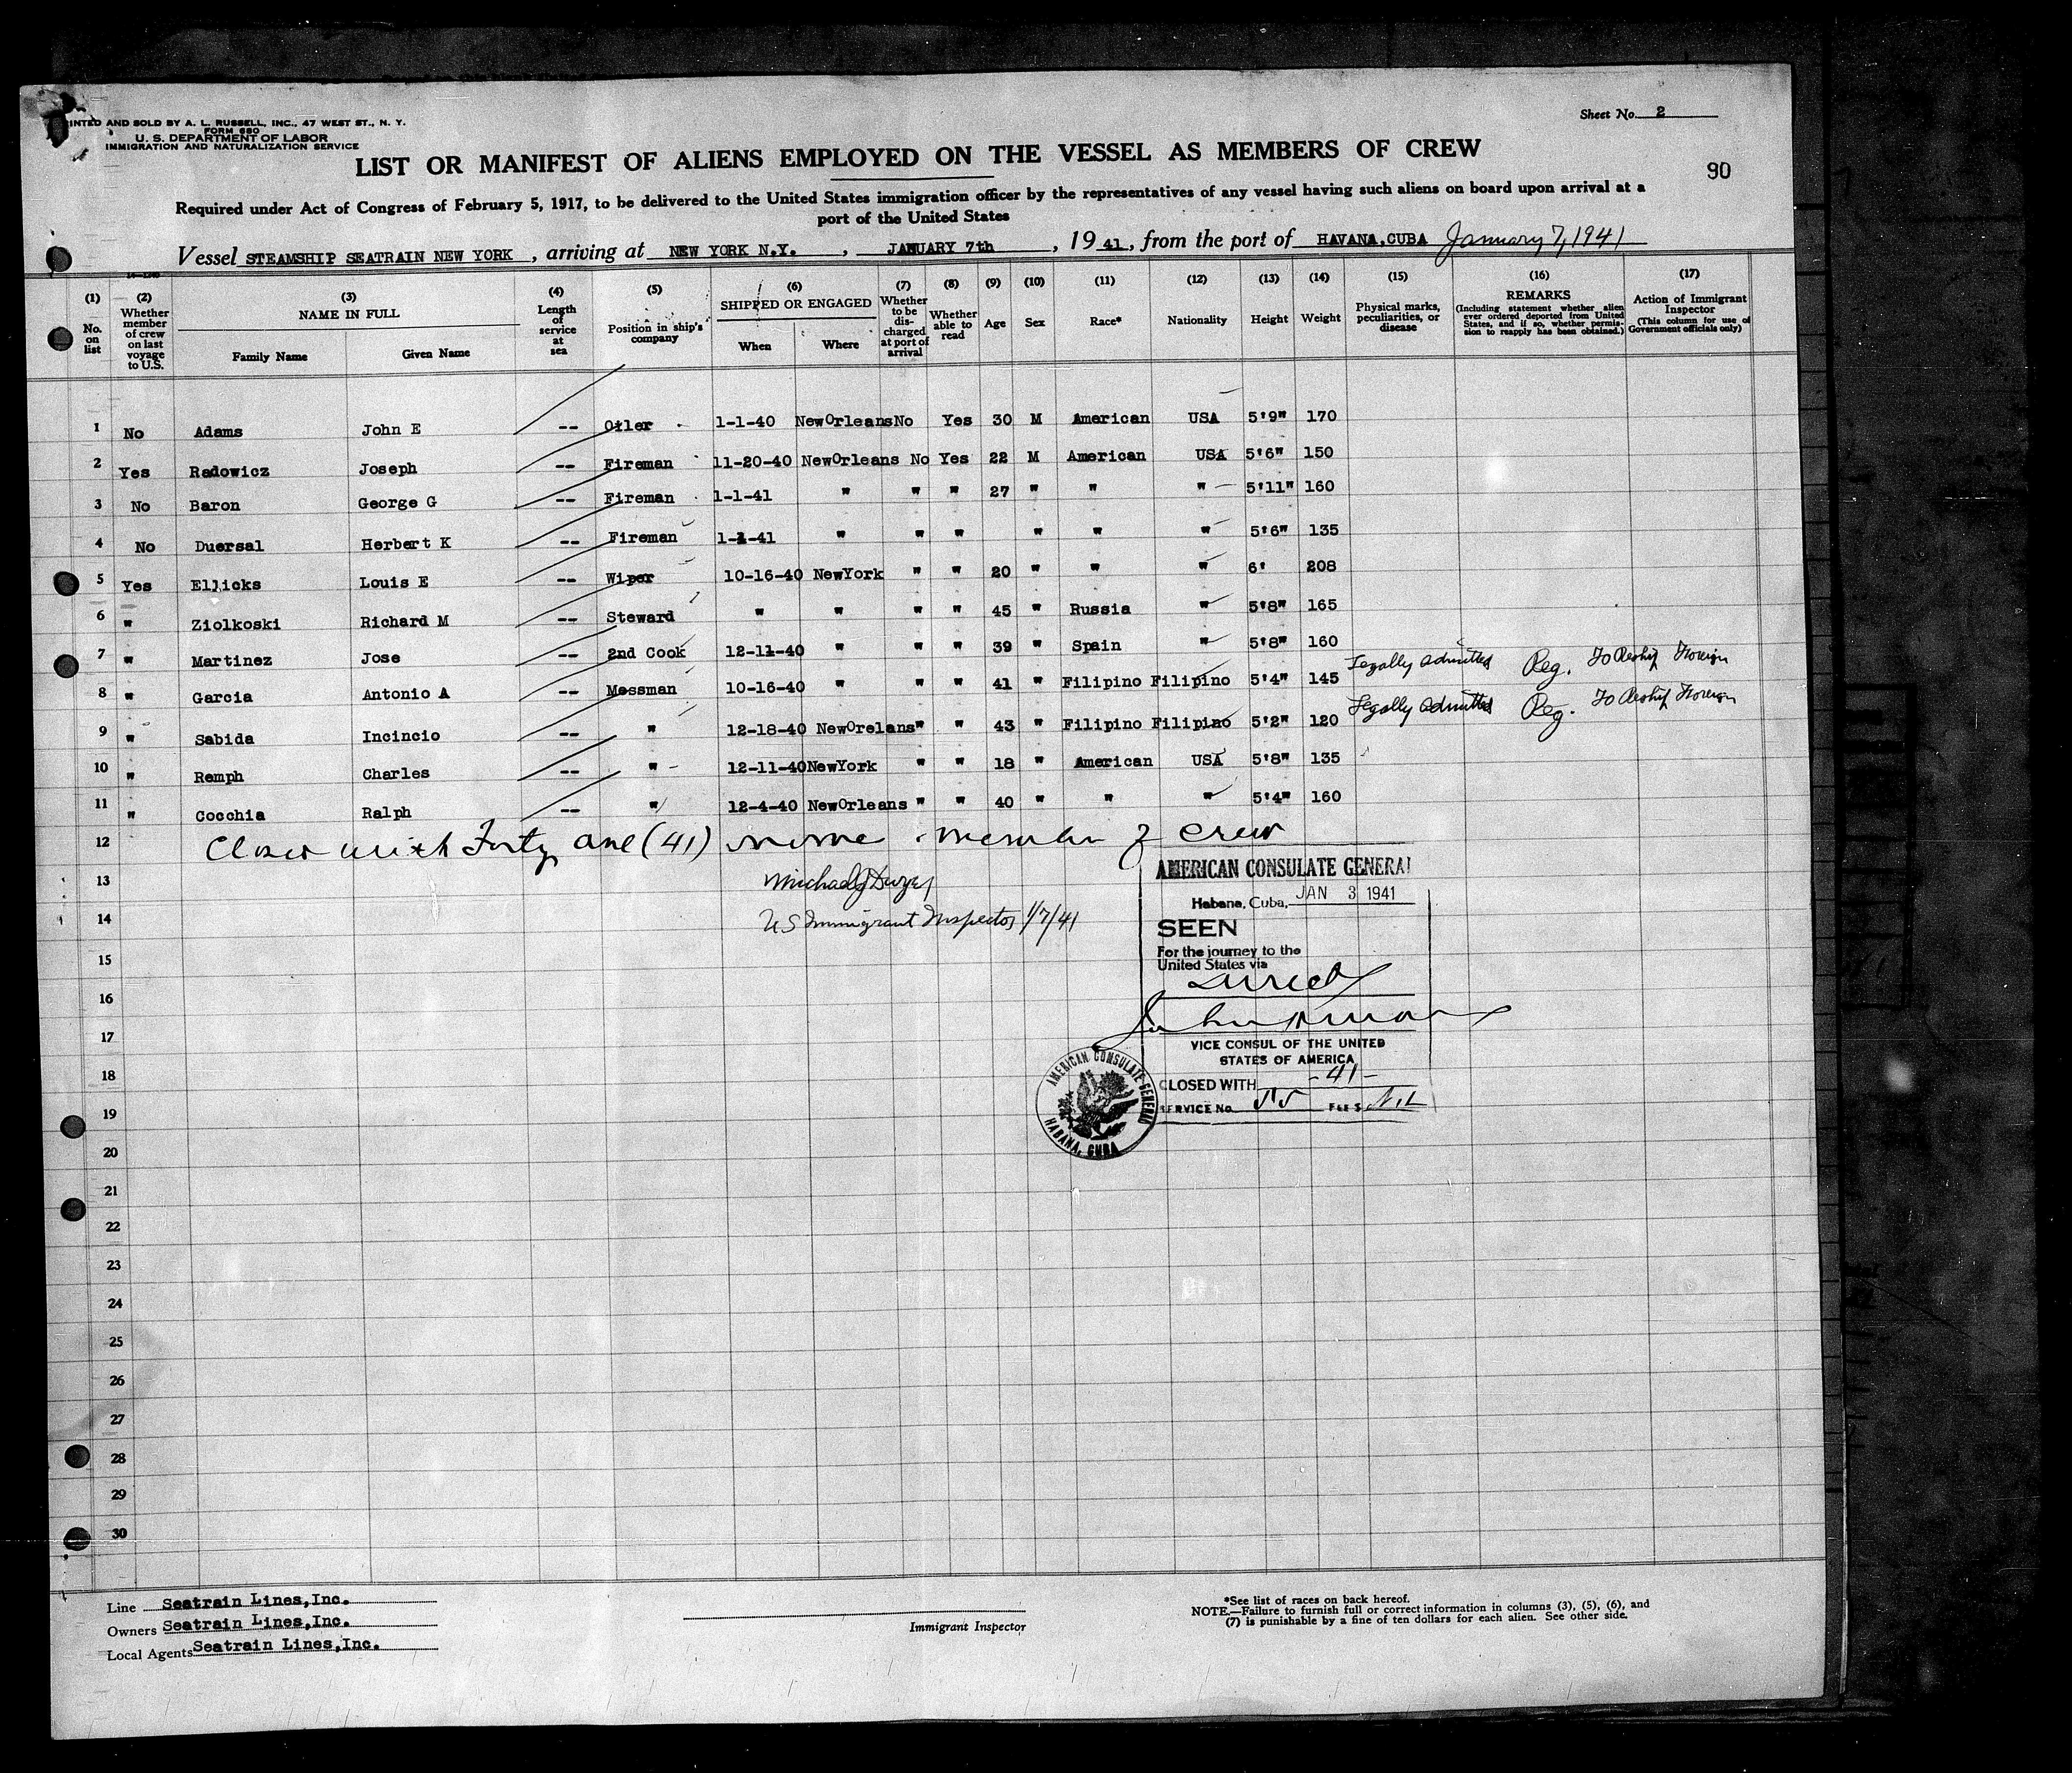 Sheet No. 2
INTED AND SOLD BY A. L. RUSSELL, INC., 47 WEST ST., N. Y.
FORM 680
U. S. DEPARTMENT OF LABOR
IMMIGRATION AND NATURALIZATION SERVICE
LIST OR MANIFEST OF ALIENS EMPLOYED ON THE VESSEL AS MEMBERS OF CREW
90
Required under Act of Congress of February 5, 1917, to be delivered to the United States immigration officer by the representatives of any vessel having such aliens on board upon arrival at a
port of the United States
Vessel STEAMSHIP SEATRAIN NEW YORK , arriving at NEW YORK N.Y. , JANUARY 7th , 19 41, from the port of HAVANA,CUBA January 7, 1941
(1) No. on list
(2) Whether member of crew on last voyage to U.S.
(3) NAME IN FULL Family Name Given Name
(4) Length of service at sea
(5) Position in ship's company
(6) SHIPPED OR ENGAGED When Where
(7) Whether to be discharged at port of arrival
(8) Whether able to read
(9) Age
(10) Sex
(11) Race*
(12) Nationality
(13) Height
(14) Weight
(15) Physical marks, peculiarities, or disease
(16) REMARKS (Including statement whether alien ever ordered deported from United States, and if so, whether permission to reapply has been obtained.)
(17) Action of Immigrant Inspector (This column for use of Government officials only)
1 No Adams John E -- Oiler 1-1-40 NewOrleans No Yes 30 M American USA 5'9" 170
2 Yes Radowicz Joseph -- Fireman 11-20-40 NewOrleans No Yes 22 M American USA 5'6" 150
3 No Baron George G -- Fireman 1-1-41 " " " 27 " " " 5'11" 160
4 No Duersal Herbert K -- Fireman 1-1-41 " " " " " " 5'6" 135
5 Yes Ellicks Louis E -- Wiper 10-16-40 NewYork " " 20 " " " 6' 208
6 " Ziolkoski Richard M -- Steward " " " " 45 " Russia " 5'8" 165
7 " Martinez Jose -- 2nd Cook 12-11-40 " " " 39 " Spain " 5'8" 160
8 " Garcia Antonio A -- Messman 10-16-40 " " " 41 " Filipino Filipino 5'4" 145 Legally admitted Reg. To Reship Foreign
9 " Sabida Incincio -- " 12-18-40 NewOrelans " " 43 " Filipino Filipino 5'2" 120 Legally admitted Reg. To Reship Foreign
10 " Remph Charles -- " 12-11-40 NewYork " " 18 " American USA 5'8" 135
11 " Cocchia Ralph -- " 12-4-40 NewOrleans " " 40 " " " 5'4" 160
12 Closes with Forty one (41) name member of crew
13
14 US Immigrant Inspector 1/7/41
AMERICAN CONSULATE GENERAL
Habana, Cuba, JAN 3 1941
SEEN
For the journey to the
United States via
Direct
VICE CONSUL OF THE UNITED
STATES OF AMERICA
CLOSED WITH -41-
SERVICE No. 55 FEES Nil
AMERICAN CONSULATE GENERAL HABANA, CUBA
15
16
17
18
19
20
21
22
23
24
25
26
27
28
29
30
Line Seatrain Lines,Inc.
Owners Seatrain Lines,Inc.
Local Agents Seatrain Lines,Inc.
Immigrant Inspector
*See list of races on back hereof.
NOTE.—Failure to furnish full or correct information in columns (3), (5), (6), and
(7) is punishable by a fine of ten dollars for each alien. See other side.